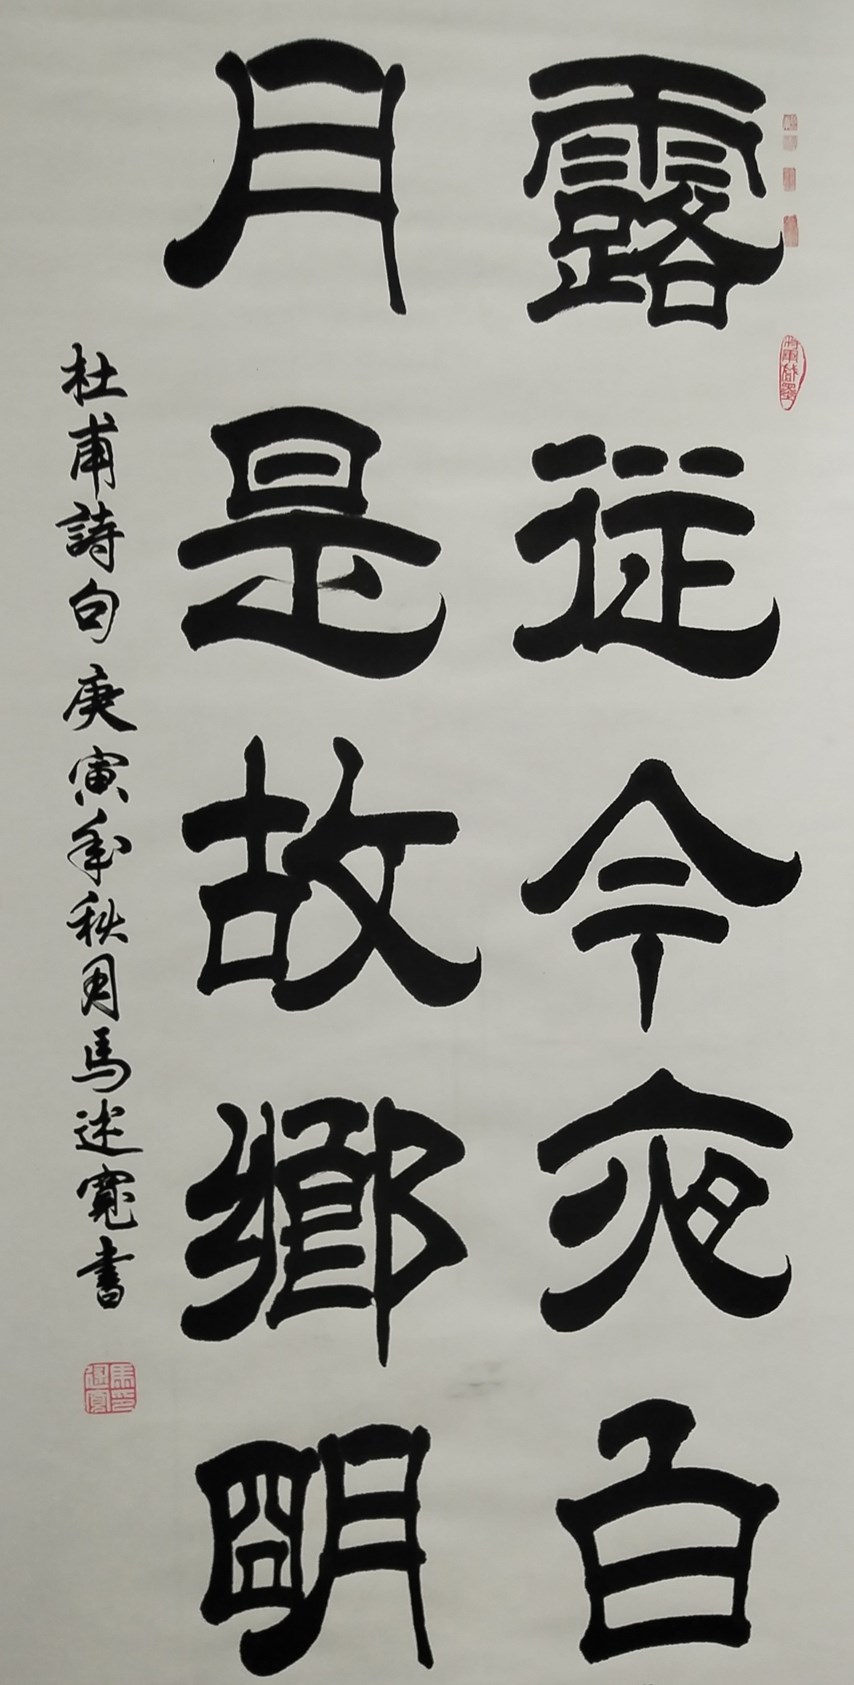 露從今夜白
月是故鄉明
杜甫詩句庚寅年秋月馬述寬書